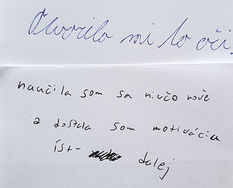 Otvorilo mi to oči.
naučila som sa niečo nové
a dostala som motiváciu
ísť dalej